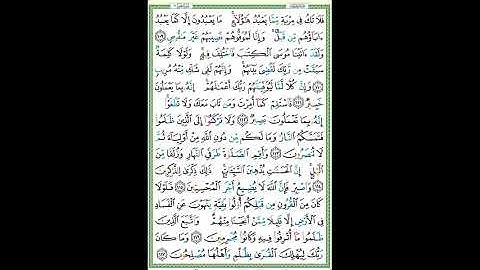 فَلَا تَكُ فِي مِرْيَةٍ مِّمَّا يَعْبُدُ هَٰٓؤُلَآءِ ۚ مَا يَعْبُدُونَ إِلَّا كَمَا يَعْبُدُ
ءَابَآؤُهُم مِّن قَبْلُ ۚ وَإِنَّا لَمُوَفُّوهُمْ نَصِيبَهُمْ غَيْرَ مَنقُوصٍ ١٠٩
وَلَقَدْ ءَاتَيْنَا مُوسَى ٱلْكِتَٰبَ فَٱخْتُلِفَ فِيهِ ۚ وَلَوْلَا كَلِمَةٌ
سَبَقَتْ مِن رَّبِّكَ لَقُضِيَ بَيْنَهُمْ ۚ وَإِنَّهُمْ لَفِي شَكٍّ مِّنْهُ مُرِيبٍ
١١٠ وَإِنَّ كُلًّا لَّمَّا لَيُوَفِّيَنَّهُمْ رَبُّكَ أَعْمَٰلَهُمْ ۚ إِنَّهُۥ بِمَا يَعْمَلُونَ
خَبِيرٌ ١١١ فَٱسْتَقِمْ كَمَآ أُمِرْتَ وَمَن تَابَ مَعَكَ وَلَا تَطْغَوْا۟ ۚ
إِنَّهُۥ بِمَا تَعْمَلُونَ بَصِيرٌ ١١٢ وَلَا تَرْكَنُوٓا۟ إِلَى ٱلَّذِينَ ظَلَمُوا۟
فَتَمَسَّكُمُ ٱلنَّارُ وَمَا لَكُم مِّن دُونِ ٱللَّهِ مِنْ أَوْلِيَآءَ ثُمَّ
لَا تُنصَرُونَ ١١٣ وَأَقِمِ ٱلصَّلَوٰةَ طَرَفَيِ ٱلنَّهَارِ وَزُلَفًا مِّنَ
ٱلَّيْلِ ۚ إِنَّ ٱلْحَسَنَٰتِ يُذْهِبْنَ ٱلسَّيِّـَٔاتِ ۚ ذَٰلِكَ ذِكْرَىٰ لِلذَّٰكِرِينَ
١١٤ وَٱصْبِرْ فَإِنَّ ٱللَّهَ لَا يُضِيعُ أَجْرَ ٱلْمُحْسِنِينَ ١١٥ فَلَوْلَا
كَانَ مِنَ ٱلْقُرُونِ مِن قَبْلِكُمْ أُو۟لُوا۟ بَقِيَّةٍ يَنْهَوْنَ عَنِ ٱلْفَسَادِ
فِي ٱلْأَرْضِ إِلَّا قَلِيلًا مِّمَّنْ أَنجَيْنَا مِنْهُمْ ۗ وَٱتَّبَعَ ٱلَّذِينَ
ظَلَمُوا۟ مَآ أُتْرِفُوا۟ فِيهِ وَكَانُوا۟ مُجْرِمِينَ ١١٦ وَمَا كَانَ
رَبُّكَ لِيُهْلِكَ ٱلْقُرَىٰ بِظُلْمٍ وَأَهْلُهَا مُصْلِحُونَ ١١٧